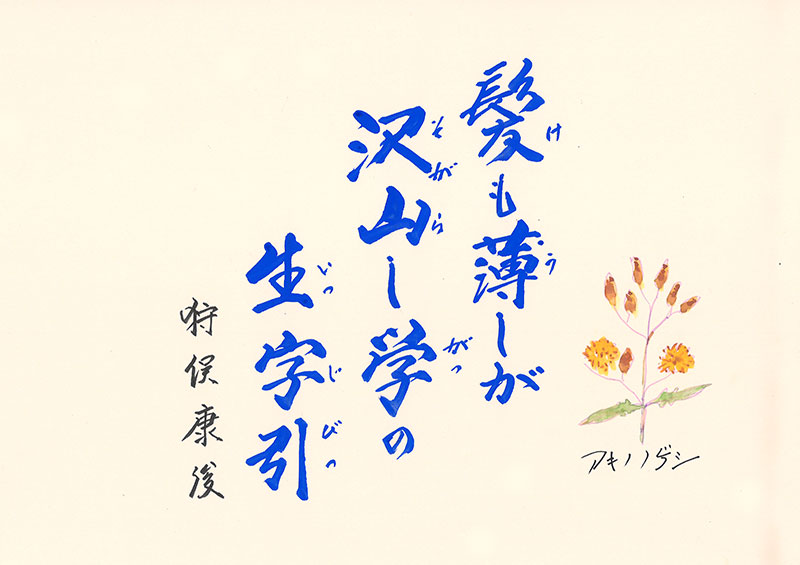 髪も薄しが
け う
沢山し学の
そがら がっ
生字引
いつ じ びつ
狩俣康俊
アキノノゲシ